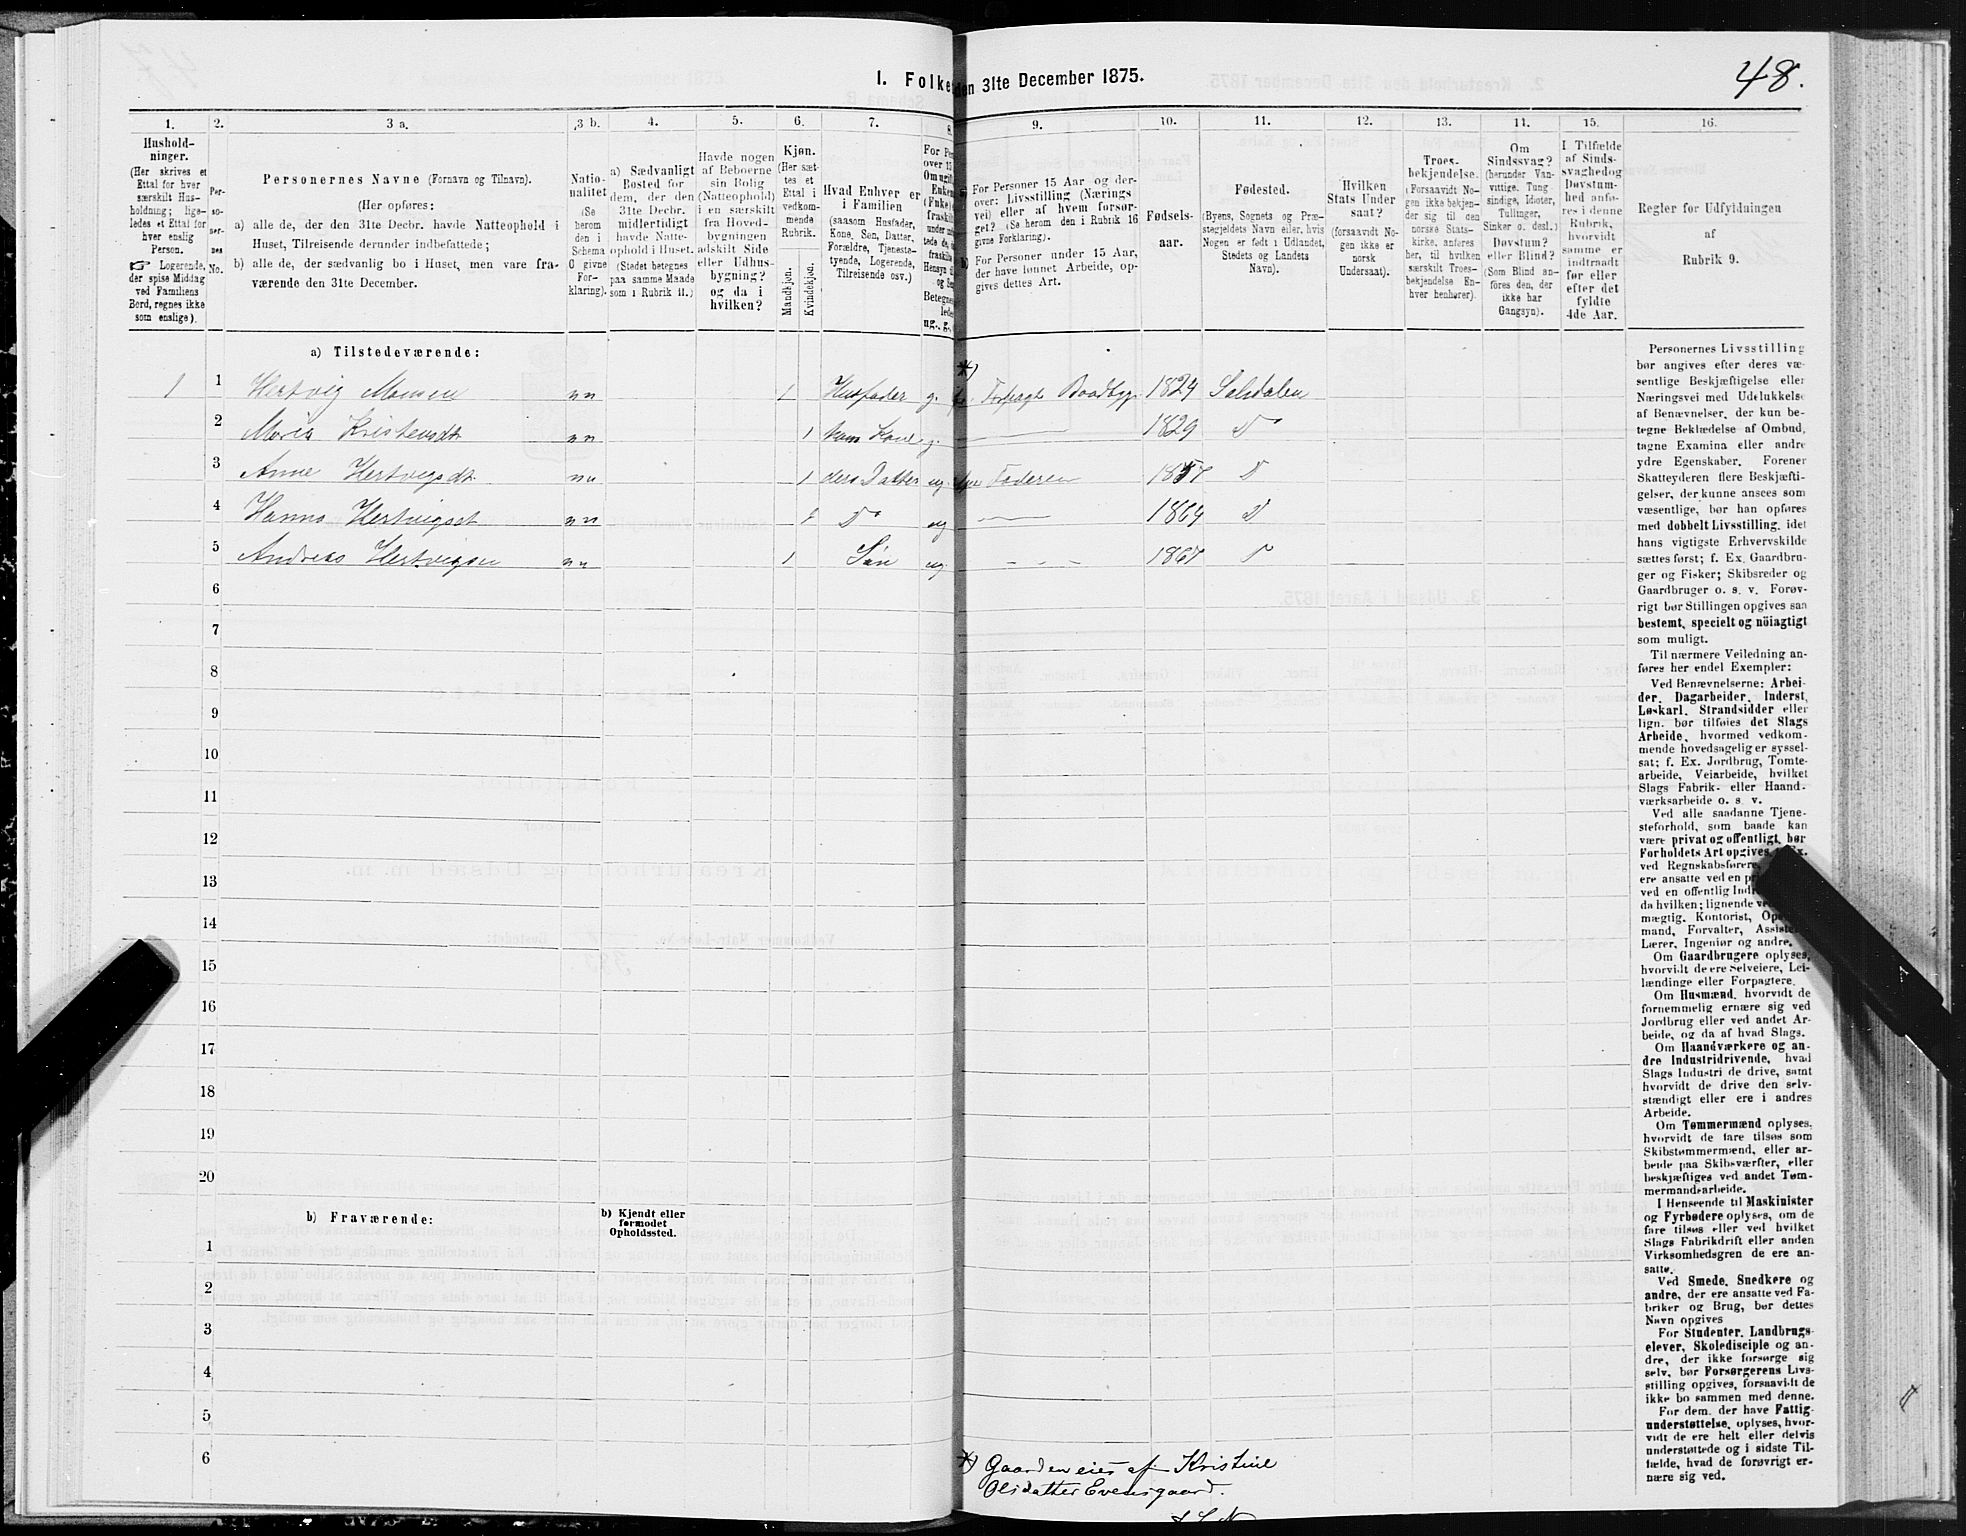 48.
I. Folke
den 31te December 1875.
1.
2.
3 a.
3 b.
4.
5.
6.
7.
8.
9.
10.
11.
12.
13.
14.
15.
16.
Hushold-
ninger.
(Her skrives et
Ettal for hver
særskilt Hus-
holdning; lige-
ledes et Ettal for
hver enslig
Person.
☞ Logerende,
der spise Middag
ved Familiens
Bord, regnes ikke
som enslige).
Per-
so-
ner-
nes
No.
Personernes Navne (Fornavn og Tilnavn).
(Her opføres:
a) alle de, der den 31te Decbr. havde Natteophold i
Huset, Tilreisende derunder indbefattede;
b) alle de, der sædvanlig bo i Huset, men vare fra-
værende den 31te December.
Natio-
nalitet
(Se
herom
den i
Schema
C givne
For-
klaring).
a) Sædvanligt
Bosted for
dem, der den
31te Decbr.
midlertidigt
havde Natte-
ophold i Huset.
(Stedet betegnes
paa samme Maade
som i Rubrik 11.)
Havde nogen
af Beboerne
sin Bolig
(Natteophold)
i en særskilt
fra Hoved-
bygningen
adskilt Side
eller Udhus-
bygning?
og da i
hvilken?
Kjøn.
(Her sæt-
tes et
Ettal i
vedkom-
mende
Rubrik.
Mandkjøn.
Kvindekjøn.
Hvad Enhver er
i Familien
(saasom Husfader,
Kone, Søn, Datter,
Forældre, Tjeneste-
tyende, Logerende,
Tilreisende osv.)
For Personer 15 Aar og der-
over: Livsstilling (Nærings-
vei) eller af hvem forsør-
get? (Se herom den i Rubrik 16
givne Forklaring).
b) For Personer under 15 Aar,
der have lønnet Arbeide, op-
gives dettes Art.
Fødsels-
aar.
Fødested.
(Byens, Sognets og Præ-
stegjeldets Navn eller, hvis
Nogen er født i Udlandet,
Stedets og Landets
Navn).
Hvilken
Stats Under
saat?
(forsaavidt No-
gen ikke er
norsk
Undersaat).
Troes-
bekjendelse.
(Forsaavidt No-
gen ikke bekjen-
der sig til den
norske Stats-
kirke, anføres
her, til hvilken
særskilt Troes-
bekjendelse En-
hver henhører).
Om
Sindssvag?
(herunder Van-
vittige, Tung
sindige, Idioter,
Tullinger,
Sinker o. desl.)
Døvstum?
eller Blind?
(Som Blind an-
føres den, der
ikke har
Gangsyn).
I Tilfælde
af Sinds-
svaghedog
Døvstum-
hed anfø-
res i denne
Rubrik,
hvorvidt
samme er
indtraadt
før eller
efter det
fyldte
4de Aar.
Regler for Udfyldningen
af
Rubrik 9.
a) Tilstedeværende:
*)
1 1 Hertvig Monsen nn 1 Husfader g. Boadbyg. 1824 Salsdalen
2 Maria Kristensdt. nn 1 hans Kone g. 1829 D°
3 Anne Hertvigsdt. nn 1 deres Datter ug. Faderen 1857 D
4 Hanna Hertvigsdt nn 1 D° ug 1864 D
5 Andreas Hertvigsen nn 1 Søn ug. 1867 D
6
7
8
9
10
11
12
13
14
15
16
17
18
19
20
b) Fraværende:
b) Kjendt eller
formodet
Opholdssted.
1
2
3
4
5
6
*) Gaarden eies af Kristine
Olsdatter Evensgaard.
Personernes Livsstilling
bør angives efter deres væ-
sentlige Beskjæftigelse eller
Næringsvei med Udelukkelse
af Benævnelser, der kun be-
tegne Beklædelse af Ombud,
tagne Examina eller andre
ydre Egenskaber. Forener
Skatteyderen flere Beskjæfti-
gelser, der kunne ansees som
væsentlige, bør han opføres
med dobbelt Livsstilling, idet
hans vigtigste Erhvervskilde
sættes først; f. Ex. Gaardbru-
ger og Fisker; Skibsreder og
Gaardbruger o. s. v. Forøv-
rigt bør Stillingen opgives saa
bestemt, specielt og nöiagtigt
som muligt.
Til nærmere Veiledning an-
føres her endel Exempler:
Ved Benævnelserne: Arbei-
der, Dagarbeider, Inderst,
Løskarl, Strandsidder eller
lign. bør tilføies det Slags
Arbeide, hvormed vedkom-
mende hovedsagelig er syssel-
sat; f. Ex. Jordbrug, Tomte-
arbeide, Veiarbeide, hvilket
Slags Fabrik- eller Haand-
værksarbeide o. s. v.
Ved alle saadanne Tjene-
steforhold, som baade kan
være privat og offentligt, bør
Forholdets Art opgives,
ved Regnskabsførere,
ere ansatte ved en
ved en offentlig
da hvilken; lignende
mægtig, Kontorist,
mand, Forvalter,
Lærer, Ingeniør og andre.
Om Gaardbrugere oplyses,
hvorvidt de ere Selveiere, Lei-
lændinge eller Forpagtere.
Om Husmænd, hvorvidt de
fornemmelig ernære sig ved
Jordbrug eller ved andet Ar-
beide, og da af hvad Slags.
Om Haandværkere og an-
dre Industridrivende, hvad
Slags Industri de drive, samt
hvorvidt de drive den selv-
stændigt eller ere i andres
Arbeide.
Om Tømmermænd oplyses,
hvorvidt de fare tilsøs som
Skibstømmermænd, eller ar-
beide paa Skibsværfter, eller
beskjæftiges ved andet Tøm-
mermandsarbeide.
I Henseende til Maskinister
og Fyrbødere oplyses, om de
fare tilsøs eller ved hvilket
Slags Fabrikdrift eller anden
Virksomhedsgren de ere an-
satte.
Ved Smede, Snedkere og
andre, der ere ansatte ved Fa-
briker og Brug, bør dettes
Navn opgives
For Studenter, Landbrugs-
elever, Skoledisciple og an-
dre, der ikke forsørge sig
selv, bør Forsørgerens Livs-
stilling opgives, forsaavidt de
ikke bo sammen med denne.
For dem, der have Fattig-
understøttelse, oplyses, hvor-
vidt de ere helt eller delvis
understøttede og i sidste Til-
fælde, hvad de forøvrigt er-
nære sig ved.